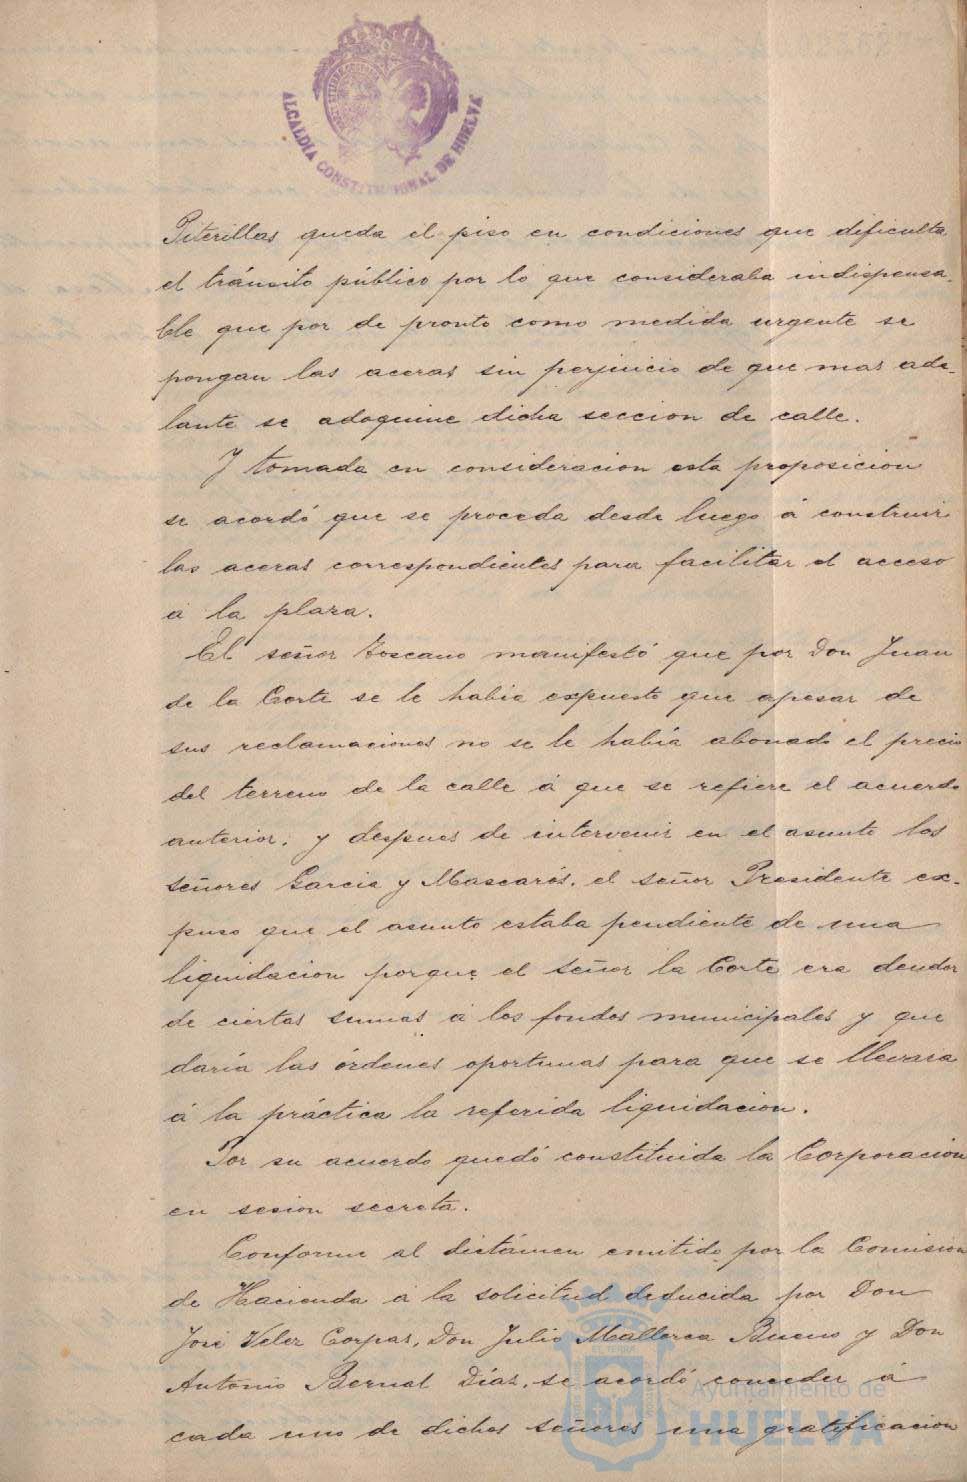 ALCALDIA CONSTITUCIONAL DE HUELVA
Piterillas queda el piso en condiciones que dificulta
el tránsito público por lo que consideraba indispensa-
ble que por de pronto como medida urgente se
pongan las aceras sin perjuicio de que mas ade-
lante se adoquine dicha seccion de calle.
Y tomada en consideracion esta proposicion
se acordó que se proceda desde luego á construir
las aceras correspondientes para facilitar el acceso
á la plaza.
El señor Toscano manifestó que por Don Juan
de la Corte se le habia expuesto que apesar de
sus reclamaciones no se le había abonado el precio
del terreno de la calle á que se refiere el acuerdo
anterior. y despues de intervenir en el asunto los
señores Garcia y Mascarós. el señor Presidente ex-
puso que el asunto estaba pendiente de una
liquidacion porque el señor la Corte era deudor
de ciertas sumas á los fondos municipales y que
daría las órdenes oportunas para que se llevara
á la práctica la referida liquidacion.
Por su acuerdo quedó constituida la Corporacion
en sesion secreta.
Conforme al dictámen emitido por la Comision
de Hacienda á la solicitud deducida por Don
José Velez Corpas, Don Julio Mallorca Bueno y Don
Antonio Bernal Díaz, se acordó conceder á
cada uno de dichos señores una gratificacion
Ayuntamiento de
HUELVA